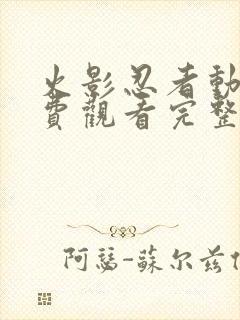 火影忍者動
費觀看完整
阿瑟-蘇尔兹伯